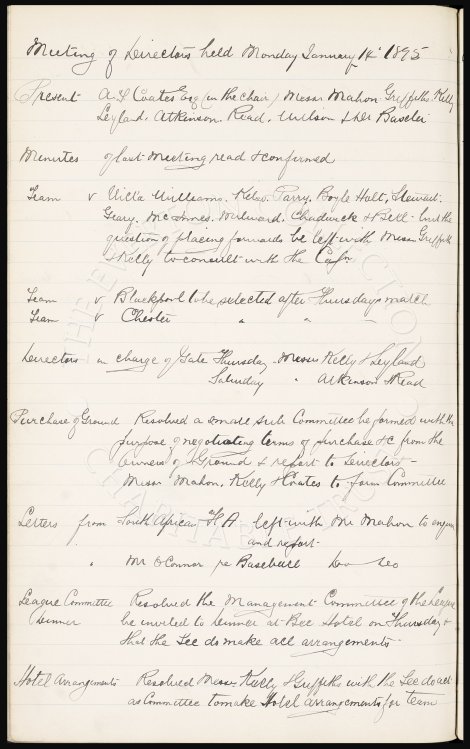 Meeting of Directors held Monday January 14th 1895
Present A. T. Coates Esq (in the chair) Messrs Mahon Griffiths Kelly
Leyland. Atkinson. Read. Wilson & Dr Baxter
Minutes of last Meeting read & confirmed
Team v Villa Williams. Kelso. Parry. Boyle Holt. Stewart.
Geary. McInnes. Milward. Chadwick & Bell. but the
question of placing forwards be left with Messrs Griffiths
& Kelly to consult with the Captn
Team v Blackpool to be selected after Thursdays match
Team v Chester " " "
Directors in charge of Gate Thursday Messrs Kelly & Leyland
Saturday " Atkinson & Read
Purchase of Ground Resolved a small sub Committee be formed with the
purpose of negotiating terms of purchase &c from the
owners of Ground & report to Directors -
Messrs Mahon, Kelly & Coates to form Committee
Letters from South African F A left with Mr Mahon to enquire
and report -
" Mr O'Connor re Baseball do do
League Committee Resolved the Management Committee of the League
Dinner be invited to Dinner at Bee Hotel on Thursday &
that the Sec do make all arrangements -
Hotel Arrangements Resolved Messrs Kelly & Griffiths with the Sec do act
as Committee to make Hotel arrangements for team